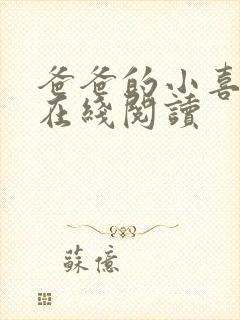 爸爸的小喜
在綫閱讀
蘇億